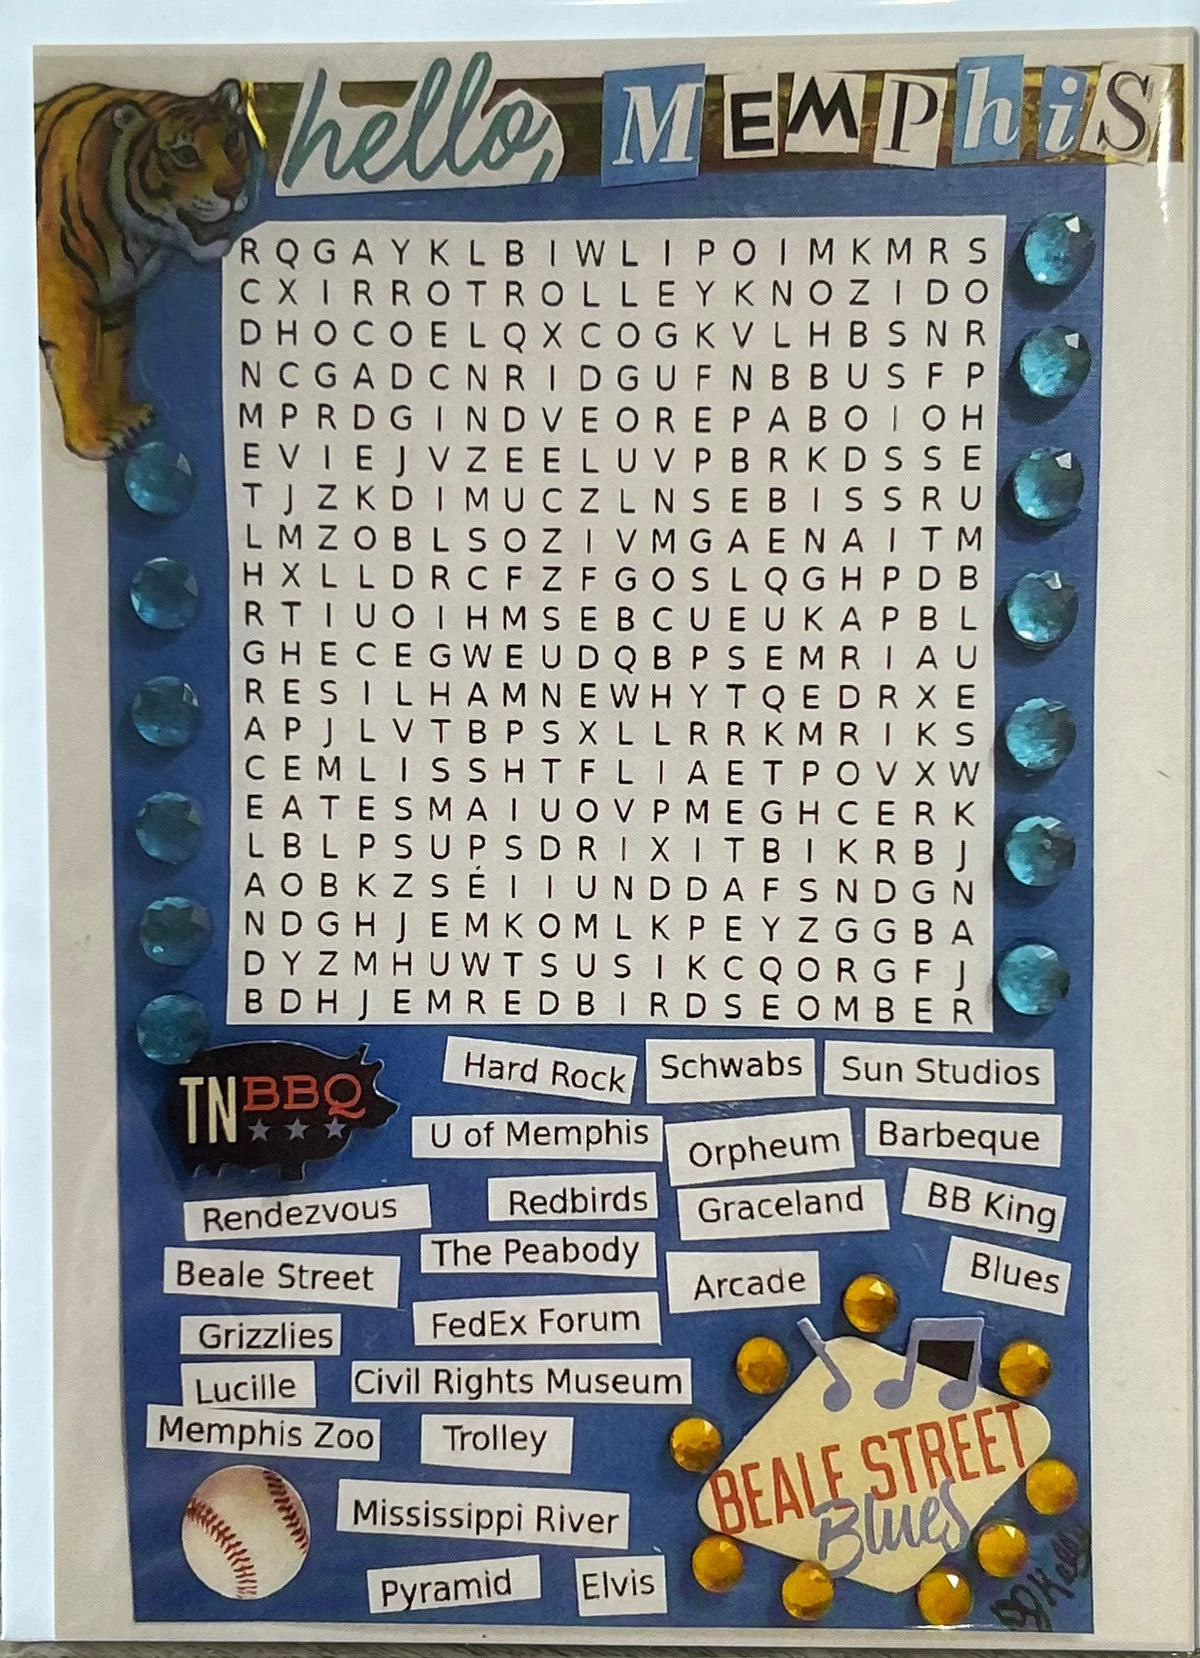 hello, MEMPhiS
R Q G A Y K L B I W L I P O I M K M R S
C X I R R O T R O L L E Y K N O Z I D O
D H O C O E L Q X C O G K V L H B S N R
N C G A D C N R I D G U F N B B U S F P
M P R D G I N D V E O R E P A B O I O H
E V I E J V Z E E L U V P B R K D S S E
T J Z K D I M U C Z L N S E B I S S R U
L M Z O B L S O Z I V M G A E N A I T M
H X L L D R C F Z F G O S L Q G H P D B
R T I U O I H M S E B C U E U K A P B L
G H E C E G W E U D Q B P S E M R I A U
R E S I L H A M N E W H Y T Q E D R X E
A P J L V T B P S X L L R R K M R I K S
C E M L I S S H T F L I A E T P O V X W
E A T E S M A I U O V P M E G H C E R K
L B L P S U P S D R I X I T B I K R B J
A O B K Z S É I I U N D D A F S N D G N
N D G H J E M K O M L K P E Y Z G G B A
D Y Z M H U W T S U S I K C Q O R G F J
B D H J E M R E D B I R D S E O M B E R
TN BBQ
Hard Rock Schwabs Sun Studios
U of Memphis Orpheum Barbeque
Rendezvous Redbirds Graceland BB King
Beale Street The Peabody Arcade Blues
Grizzlies FedEx Forum
Lucille Civil Rights Museum
Memphis Zoo Trolley
Mississippi River
Pyramid Elvis
BEALE STREET
Blues